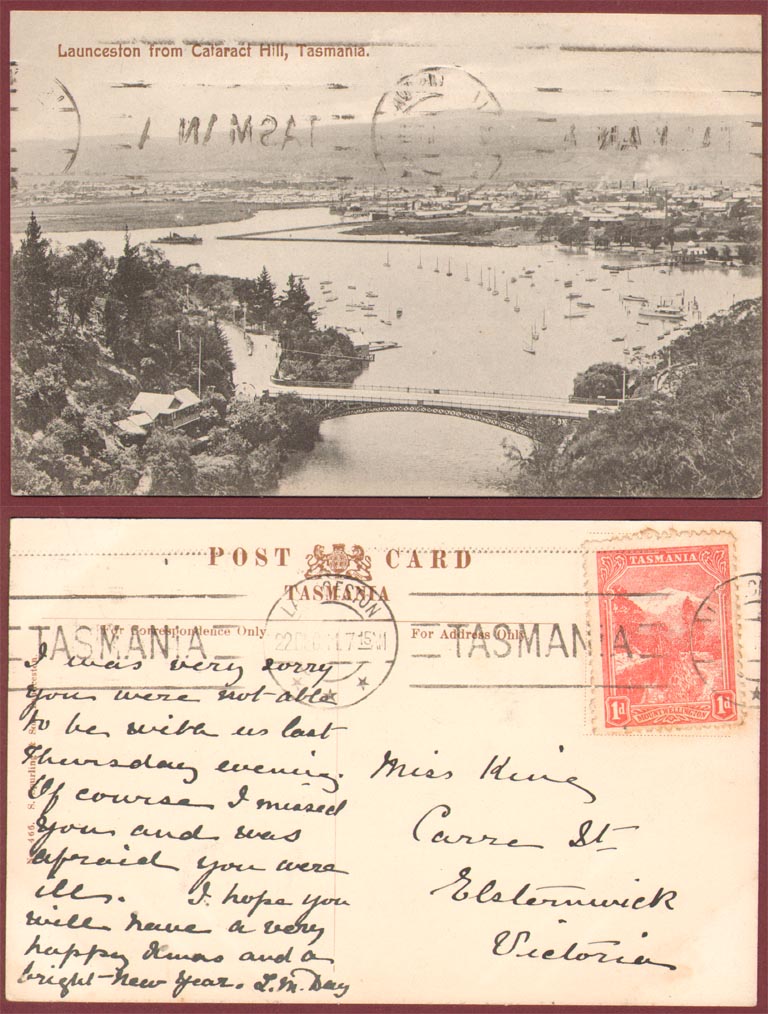 Launceston from Cataract Hill, Tasmania.
TASMANIA
POST CARD
TASMANIA
For Correspondence Only
For Address Only
TASMANIA
LAUNCESTON
TASMANIA
TASMANIA
1d MOUNT WELLINGTON 1d
I was very sorry
you were not able
to be with us last
Thursday evening.
Of course I missed
you and was
afraid you were
ill. I hope you
will have a very
happy Xmas and a
bright New Year. L.M. Day
Miss King
Carre St
Elsternwick
Victoria